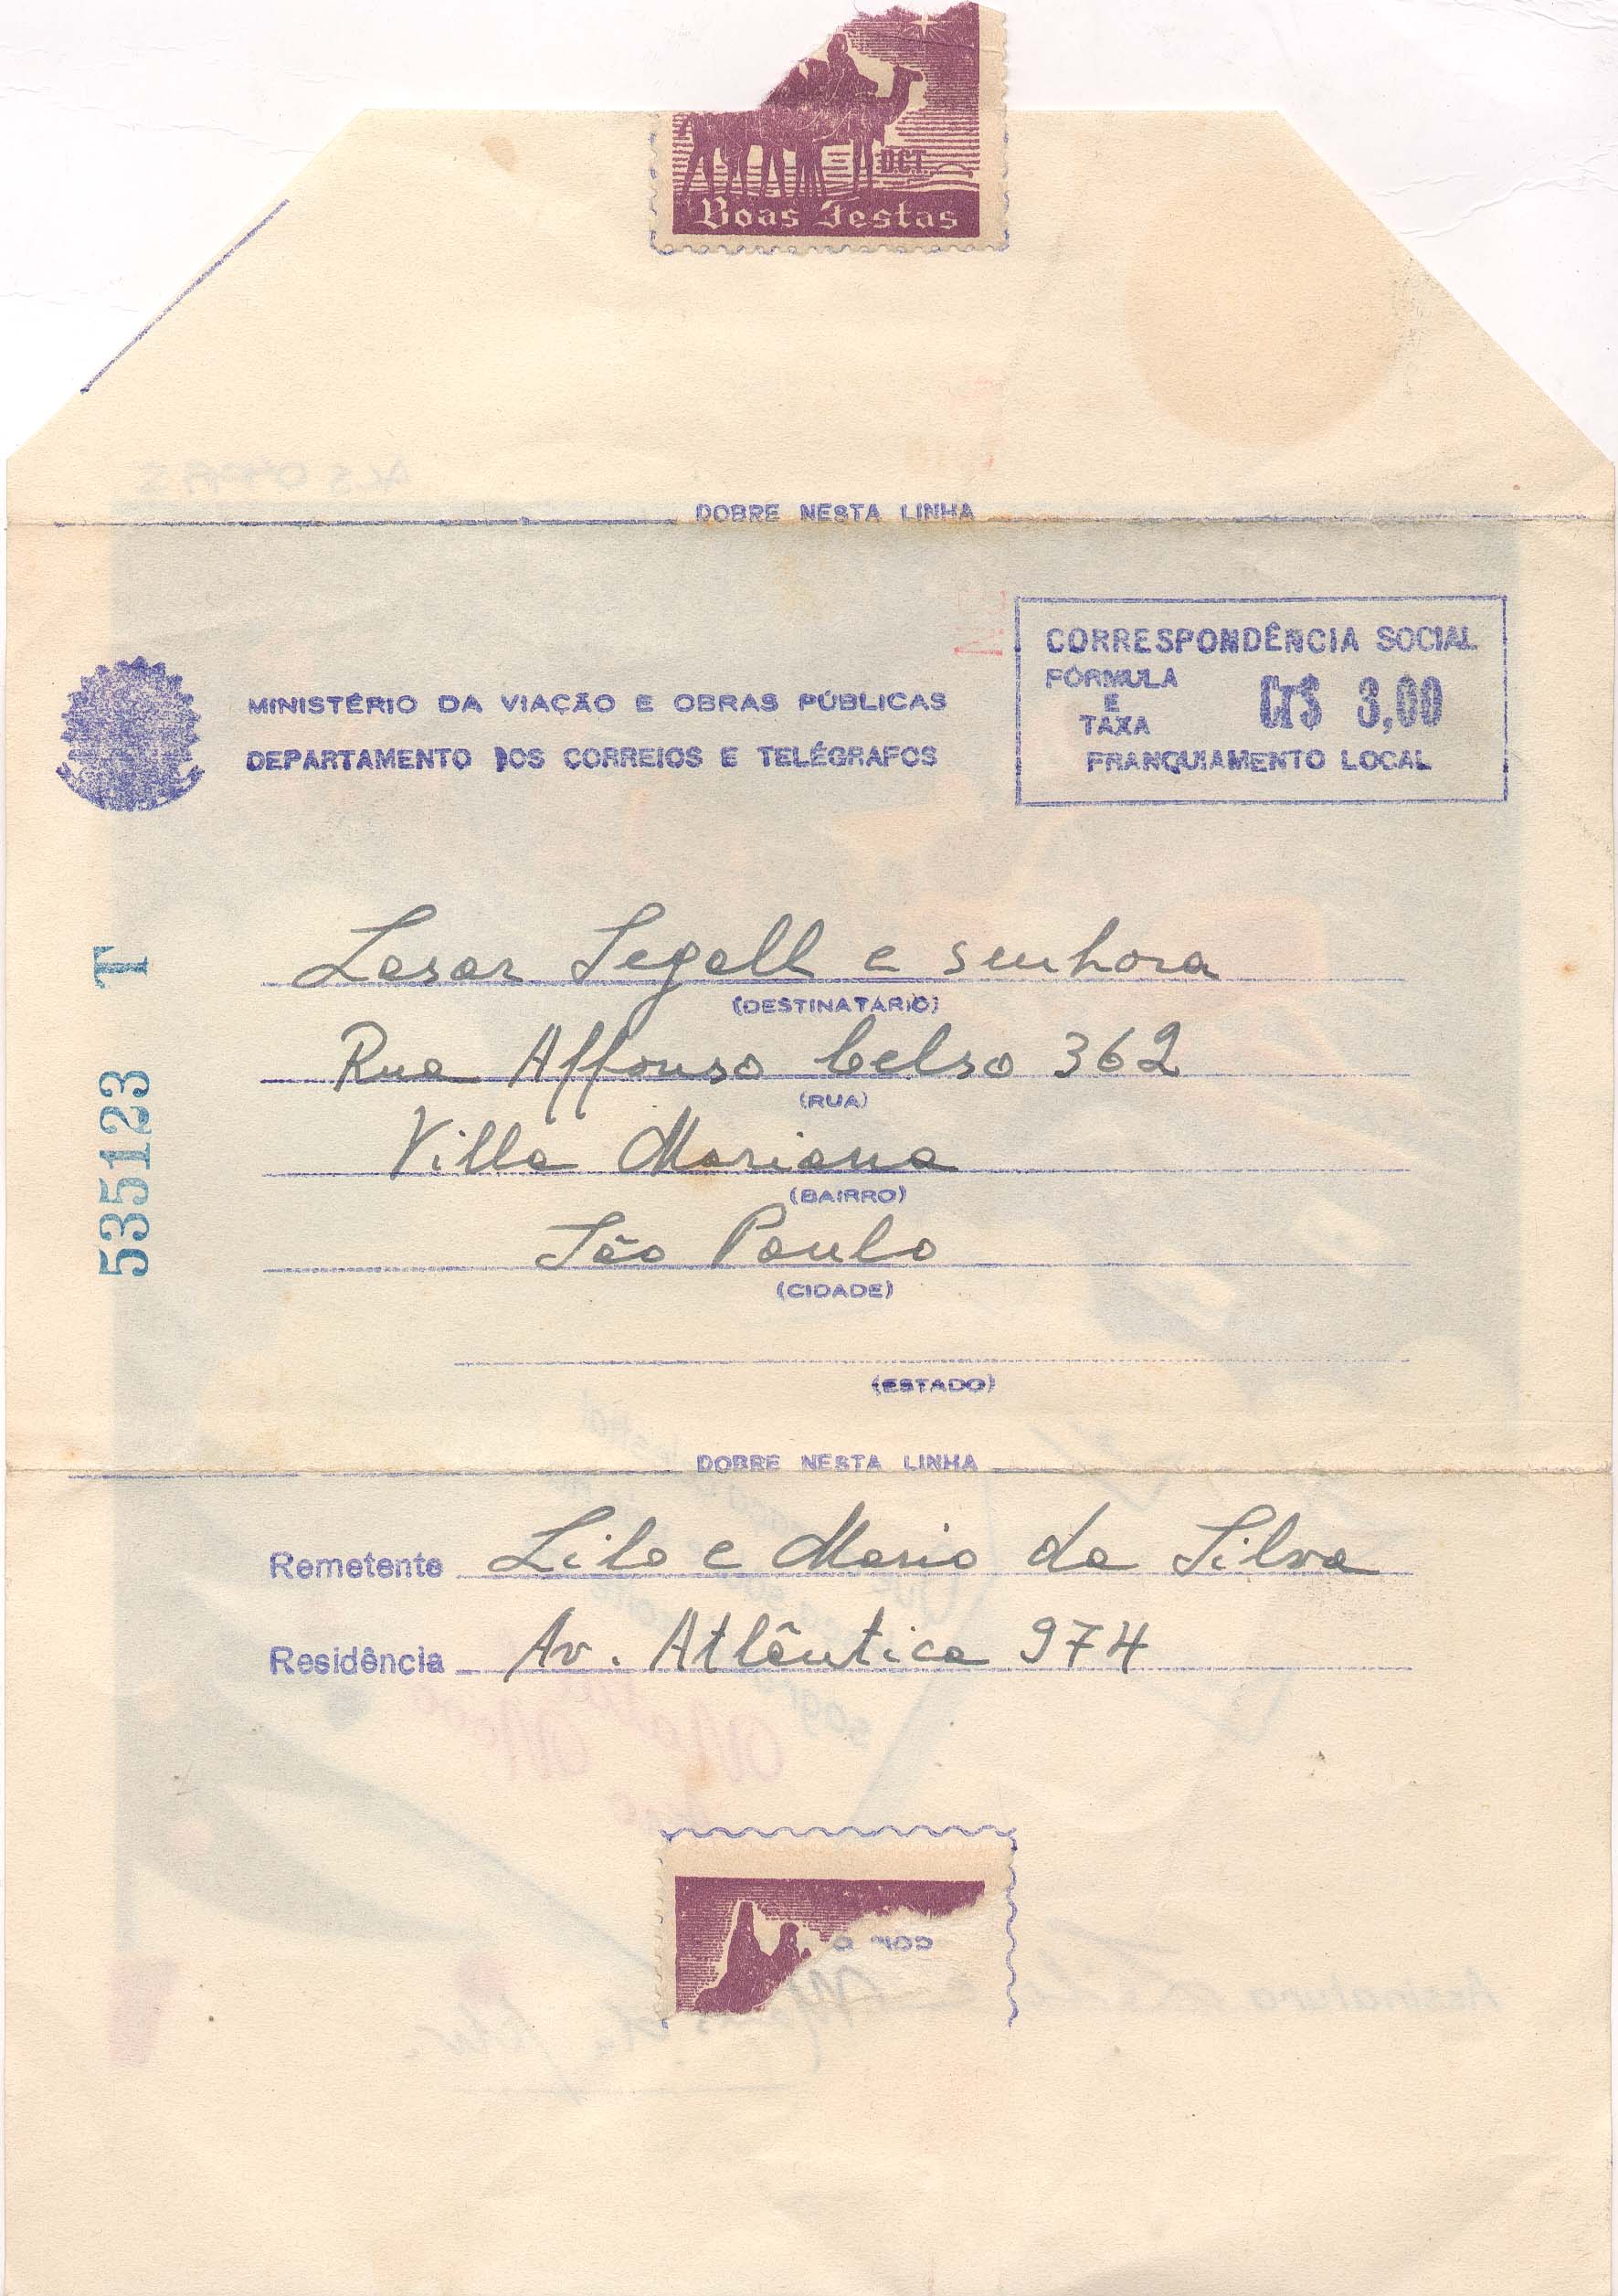 D.C.T.
Boas Festas
DOBRE NESTA LINHA
CORRESPONDÊNCIA SOCIAL
FÓRMULA
E
TAXA
Cr$ 3,00
FRANQUIAMENTO LOCAL
MINISTÉRIO DA VIAÇÃO E OBRAS PÚBLICAS
DEPARTAMENTO DOS CORREIOS E TELÉGRAFOS
535123 T
Lasar Segall e senhora
(DESTINATÁRIO)
Rua Affonso Celso 362
(RUA)
Villa Mariana
(BAIRRO)
São Paulo
(CIDADE)
(ESTADO)
DOBRE NESTA LINHA
Remetente Lilo e Mario da Silva
Residência Av. Atlântica 974